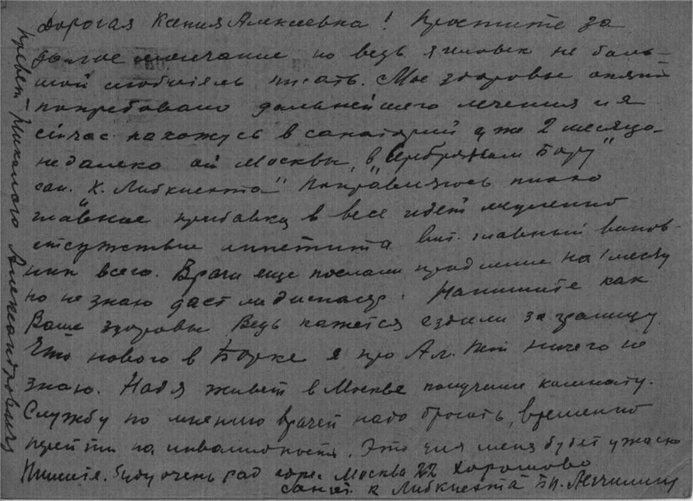 Дорогая Ксения Алексеевна! Простите за
долгое молчание но ведь я человек не боль-
шой любитель писать. Мое здоровье опять
потребовало дальнейшего лечения и я
сейчас нахожусь в санаторий уже 2 месяца
недалеко от Москвы, "в Серебряном Бору"
сан. "К. Либкнехта" Поправляюсь плохо
главное прибавка в весе идет медленно
отсутствие аппетита вит. главный винов-
ник всего. Врачи еще послали продление на 1 месяц
но не знаю даст ли диспансер. Напишите как
Ваше здоровье Ведь кажется ездили за границу
Что нового в Борке я про Ал. ничего не
знаю. Надя живет в Москве получила комнату.
Службу по мнению врачей надо бросать, временно
перейти на инвалидность. Это для меня будет ужасно
Пишите. Буду очень рад адрес Москва Хорошово
санат. К Либкнехта
Привет Николаю Александровичу